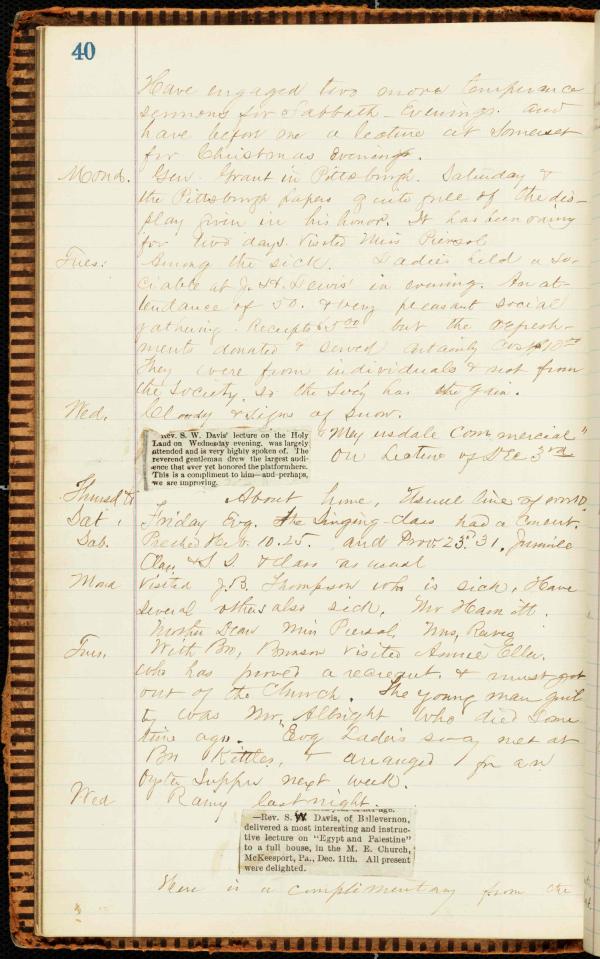 40
Have engaged two more temperance
sermons for Sabbath Evenings. and
have before me a lecture at Somerset
for Christmas Evening.
Mond. Gen. Grant in Pittsburgh. Saturday &
the Pittsburgh papers quite full of the dis-
play given in his honor. It has been rainy
for two days. Visited Miss Piersol
Tues: Among the sick. Ladies held a so-
ciable at J. H. Lewis' in evening. An at-
tendance of 50. & very pleasant social
gathering. Receipts but the refresh-
ments donated & served certainly cost
They were from individuals & not from
the Society. so the Socy has the gain.
Wed. Cloudy & signs of snow.
Rev. S. W. Davis' lecture on the Holy
Land on Wednesday evening, was largely
attended and is very highly spoken of. The
reverend gentleman drew the largest audi-
ence that ever yet honored the platform here.
This is a compliment to him—and perhaps,
we are improving.
Commercial"
on Lecture of Dec 3rd
Thursd. to About home, Usual line of work.
Sat: Friday Evg. The Singing-class had a concert.
Sab. Preached Heb. 10.25. and Prov 23d. 31. Juvenile
Class & S. S. & Class as usual
Mond Visited J. B. Thompson who is sick. Have
several others also sick. Mr
Mother Dean Miss Piersol, Mrs. Reeves
Tues. With Bro. visited Annie
who has proved a recreant & must get
out of the Church. The young man guil-
ty was Mr. Albright who died some
time ago. Evg Ladies socy met at
Bro Kittles, & arranged for an
Oyster Supper next week.
Wed Rainy last night.
—Rev. S. W. Davis, of Bellevernon,
delivered a most interesting and instruc-
tive lecture on "Egypt and Palestine"
to a full house, in the M. E. Church,
McKeesport, Pa., Dec. 11th. All present
were delighted.
Here is a complimentary from the